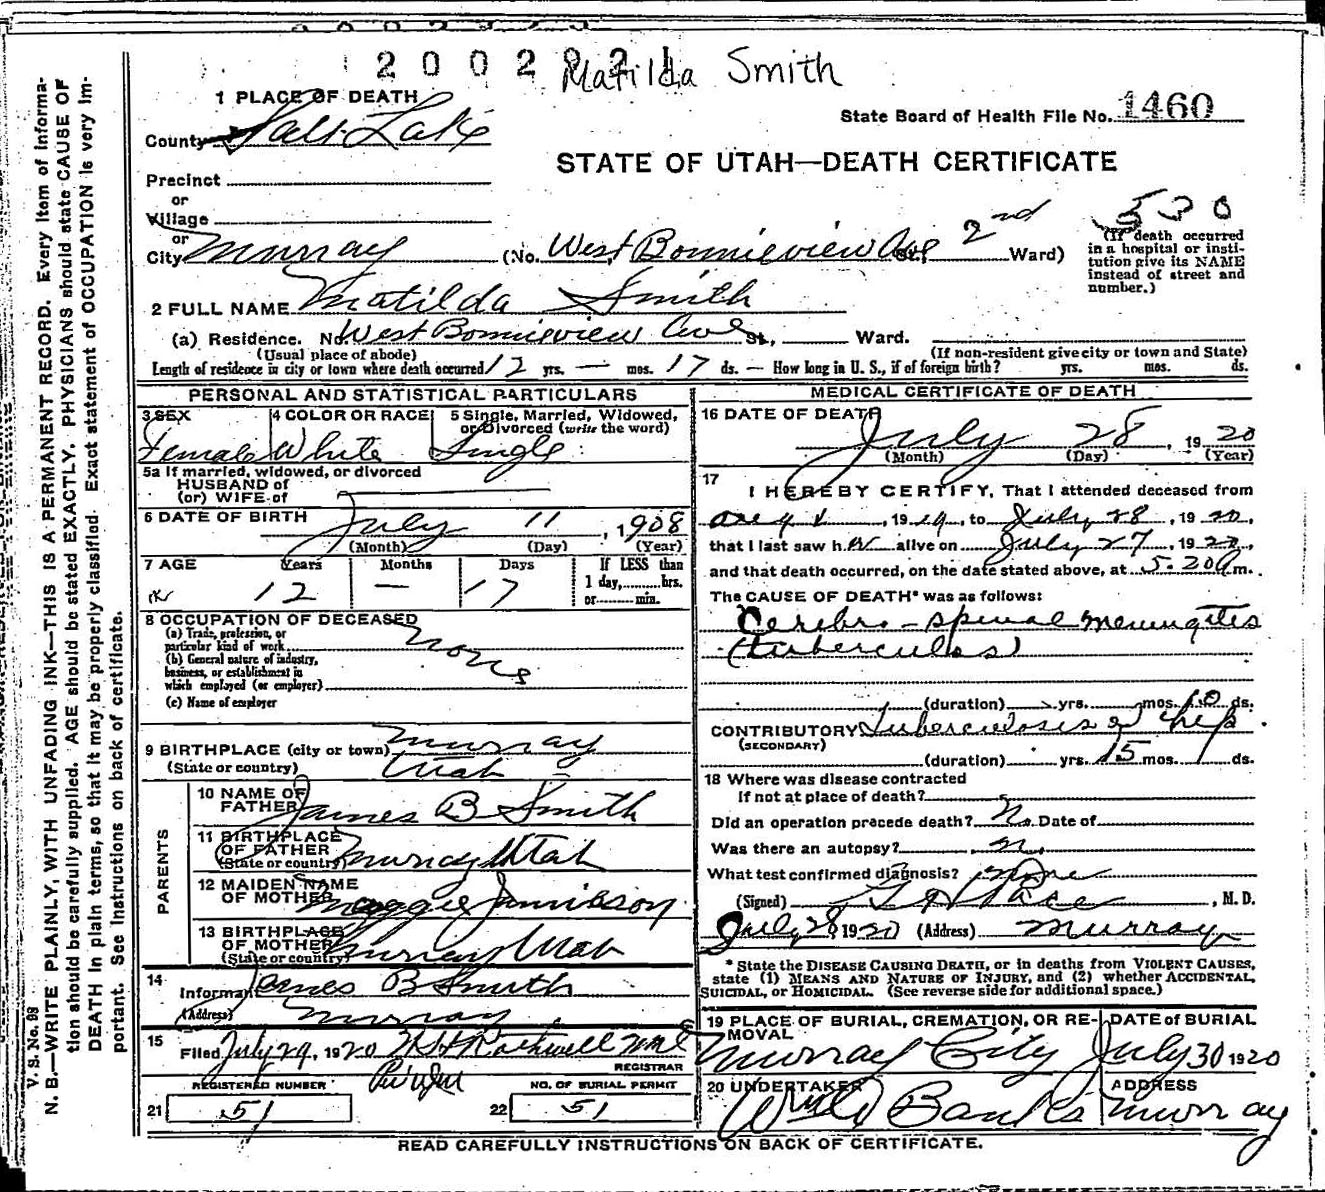 Matilda Smith
1 PLACE OF DEATH
State Board of Health File No. 1460
County Salt Lake
STATE OF UTAH—DEATH CERTIFICATE
Precinct
or
Village
or
City Murray (No. West Bonnieview Ave St., 2nd Ward)
530
(If death occurred in a hospital or institution give its NAME instead of street and number.)
2 FULL NAME Matilda Smith
(a) Residence. No. West Bonnieview Ave St., Ward.
(Usual place of abode) (If non-resident give city or town and State)
Length of residence in city or town where death occurred 12 yrs. — mos. 17 ds. — How long in U. S., if of foreign birth? yrs. mos. ds.
PERSONAL AND STATISTICAL PARTICULARS
3 SEX Female
4 COLOR OR RACE White
5 Single, Married, Widowed, or Divorced (write the word) Single
5a If married, widowed, or divorced
HUSBAND of
(or) WIFE of
6 DATE OF BIRTH July 11, 1908
(Month) (Day) (Year)
7 AGE Years 12 Months — Days 17
If LESS than
1 day, hrs.
or min.
8 OCCUPATION OF DECEASED
(a) Trade, profession, or
particular kind of work None
(b) General nature of industry,
business, or establishment in
which employed (or employer)
(c) Name of employer
9 BIRTHPLACE (city or town) Murray
(State or country) Utah
PARENTS
10 NAME OF FATHER James B Smith
11 BIRTHPLACE OF FATHER (State or country) Murray Utah
12 MAIDEN NAME OF MOTHER Maggie Jamieson
13 BIRTHPLACE OF MOTHER (State or country) Murray Utah
14 Informant James B Smith
(Address) Murray
15 Filed July 29, 1920 H Rothwell
REGISTRAR
REGISTERED NUMBER
21 51
NO. OF BURIAL PERMIT
22 51
MEDICAL CERTIFICATE OF DEATH
16 DATE OF DEATH July 28, 1920
(Month) (Day) (Year)
17
I HEREBY CERTIFY, That I attended deceased from
Aug 1, 1919, to July 28, 1920,
that I last saw her alive on July 27, 1920,
and that death occurred, on the date stated above, at 5.20 a m.
The CAUSE OF DEATH* was as follows:
Cerebro-spinal Meningites
(tuberculos)
(duration) yrs. mos. 10 ds.
CONTRIBUTORY Tuberculosis of hip
(SECONDARY)
(duration) yrs. 15 mos. ds.
18 Where was disease contracted
if not at place of death?
Did an operation precede death? No Date of
Was there an autopsy? No
What test confirmed diagnosis? None
(Signed) G A Pace, M. D.
July 28 1920 (Address) Murray
* State the DISEASE CAUSING DEATH, or in deaths from VIOLENT CAUSES,
state (1) MEANS AND NATURE OF INJURY, and (2) whether ACCIDENTAL,
SUICIDAL, or HOMICIDAL. (See reverse side for additional space.)
19 PLACE OF BURIAL, CREMATION, OR REMOVAL Murray City
DATE of BURIAL July 30 1920
20 UNDERTAKER Banks
ADDRESS Murray
READ CAREFULLY INSTRUCTIONS ON BACK OF CERTIFICATE.
V. S. No. 98
N. B.—WRITE PLAINLY, WITH UNFADING INK—THIS IS A PERMANENT RECORD. Every item of information should be carefully supplied. AGE should be stated EXACTLY. PHYSICIANS should state CAUSE OF
DEATH in plain terms, so that it may be properly classified. Exact statement of OCCUPATION is very important. See instructions on back of certificate.